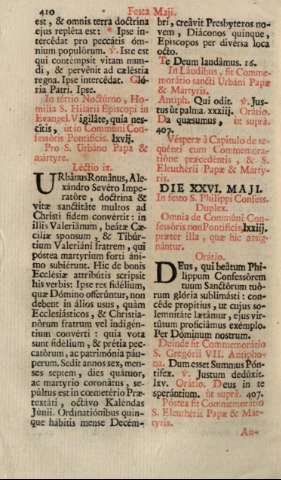 410
Festa Maji.
est, & omnis terra doctrina
ejus repléta est: * Ipse inter-
cédat pro peccátis óm-
nium populórum. ℣. Iste est
qui contempsit vitam mun-
di, & pervénit ad cæléstia
regna. Ipse intercédat. Gló-
ria Patri. Ipse.
In tértio Noctúrno, Ho-
mília S. Hilárii Episcopi in
Evangel. Vigiláte, quia nes-
cítis, ut in Commúni Con-
fessóris Pontíficis. lxvij.
Pro S. Urbáno Papa &
mártyre.
Lectio ix.
URbánus Románus, Ale-
xándro Sevéro Imperatóre, doctrína &
vitæ sanctitáte multos ad
Christi fidem convértit: in
illis Valeriánum, beátæ Cæ-
cíliæ sponsum, & Tibúr-
tium Valeriáni fratrem, qui
póstea martyrium forti áni-
mo subiérunt. Hic de bonis
Ecclésiæ attribútis scripsit
his verbis: Ipse res fidélium,
quæ Dómino offerúntur, non
debent in álios usus, quàm
Ecclesiásticos, & Christia-
nórum fratrum vel indigén-
tium convérti: quia vota
sunt fidélium, & prétia pec-
catórum, ac patrimónia páu-
perum. Sedit annos sex, men-
ses septem, dies quátuor,
ac martyrio coronátus, se-
púltus est in cœmetério Præ-
textáti, octávo Kaléndas
Júnii. Ordinatiónibus quin-
que hábitis mense Decém-
bri, creávit Presbyteros no-
vem, Diáconos quinque,
Episcopos per divérsa loca
octo.
Te Deum laudámus. 16.
In Láudibus, fit Comme-
morátio sancti Urbáni Papæ
& Martyris.
Antiph. Qui odit. ℣. Jus-
tus ut palma. xxxiij. Orátio.
Da quæsumus, ut suprà.
407.
Vésperæ à Capítulo de se-
quénti cum Commemora-
tióne præcedéntis, & S.
Eleuthérii Papæ & Marty-
ris.
DIE XXVI. MAJI.
In festo S. Philíppi Confess.
Duplex.
Omnia de Commúni Con-
fessóris non Pontíficis lxxiij.
præter illa, quæ hìc assig-
nántur.
Orátio.
DEus, qui beátum Phi-
líppum Confessórem
tuum Sanctórum tuó-
rum glória sublimásti: con-
céde propítius, ut cujus so-
lemnitáte lætámur, ejus vir-
tútum proficiámus exémplo.
Per Dóminum nostrum.
Deinde fit Commemorátio
S. Gregórii VII. Antípho-
na. Dum esset Summus Pón-
tifex. ℣. Justum dedúxit.
lxv. Orátio. Deus in te
sperántium. ut suprà. 407.
Póstea fit Commemorátio
S. Eleuthérii Papæ & Mar-
tyris.
An-